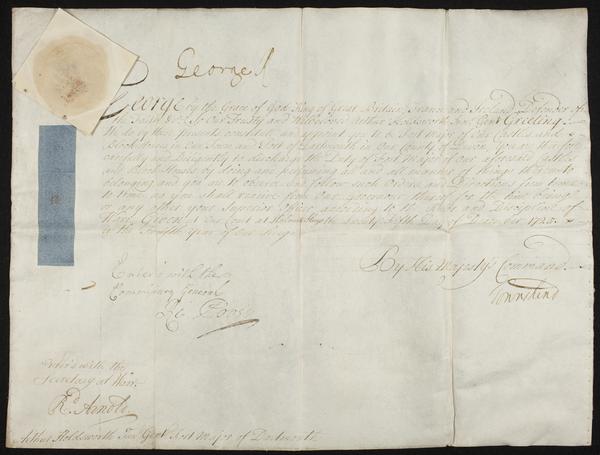 George R
George by the Grace of God King of Great Britain, France and Ireland, Defender of
the Faith &c. To Our Trusty and Welbeloved Arthur Holdsworth Junr. Gent. Greeting:
We do by these presents constitute and appoint you to be Fort Major of Our Castles and
Block Houses in Our Town and Port of Dartmouth in Our County of Devon. You are therefore
carefully and Diligently to discharge the Duty of Fort Major of our aforesaid Castles
and Block Houses by doing and performing all and all manner of things thereunto
belonging and you are to observe and follow such Orders and Directions from time
to time as you shall receive from Our governor thereof for the time being
or any other your Superior Officer according to the Rules and Discipline of
War. Given at Our Court at the Twenty Fifth Day of December 1725.
in the Twelfth Year of Our Reign.
Enter'd with the
Commissary General
By His Majesty's Command.
Townshend
Enter'd with the
Secretary at Warr.
Rd. Arnold
Arthur Holdsworth Junr. Gent. Fort Major of Dartmouth